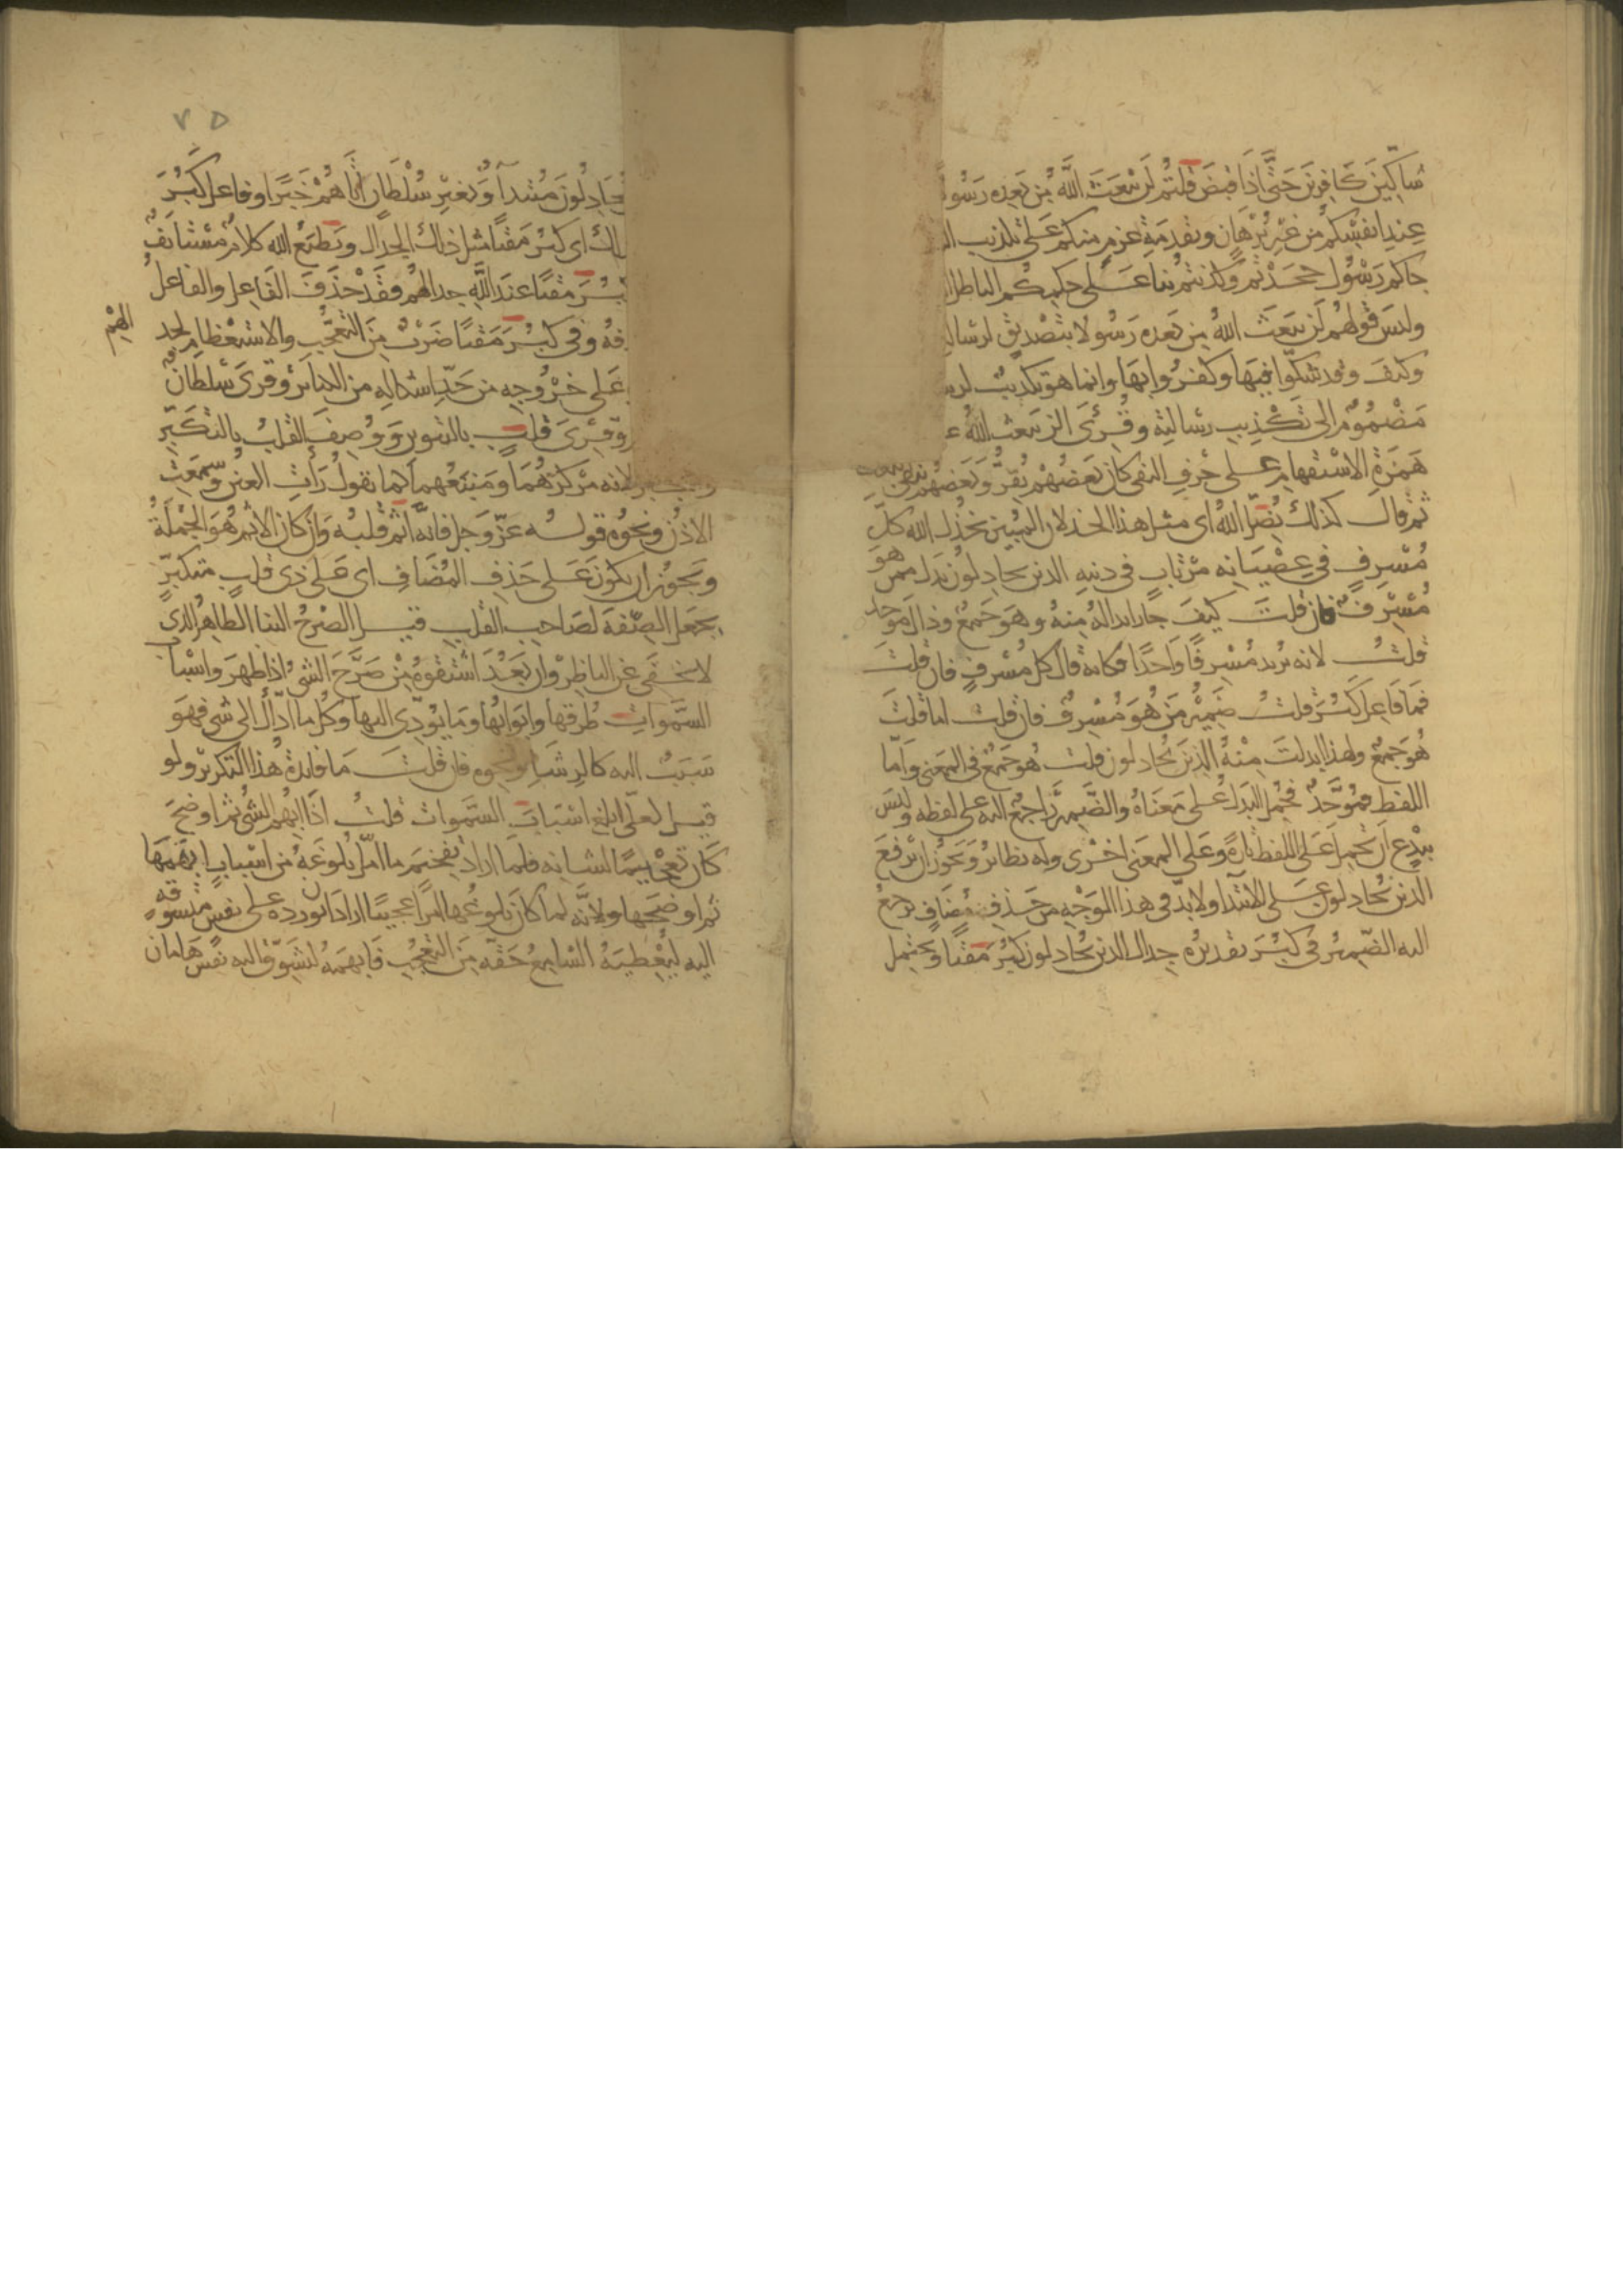 شاكين كافرين حتى اذا قبض قلتم لن يبعث الله من بعده رسو
عند انفسكم من غير برهان وتقدمة عزم منكم على تكذيب ال
جاكم رسول جحدتم وكذبتم بنا على حكمكم الباطل ا
وليس قولهم لن يبعث الله من بعده رسولا بتصديق لرسال
وكيف وقد شكوا فيها وكفروا بها وانما هو تكذيب لرس
مضموم الى تكذيب رسالته وقرئ الن يبعث الله ع
همزة الاستفهام على حرف النفي كان بعضهم يقرر وبعضهم بنفي
ثم قال كذلك يضل الله اي مثل هذا الخذلان المبين يخذل الله كل
مسرف في عصيانه مرتاب في دينه الذين يجادلون بدل ممن هو
مسرف فان قلت كيف جاز ابداله منه وهو جمع وذاك موحد
قلت لانه يريد مسرفا واحدا فكانه قال كل مسرف فان قلت
فما فاعل كبر قلت ضمير من هو مسرف فان قلت اما قلت
هو جمع ولهذا ابدلت منه الذين يجادلون قلت هو جمع في المعنى واما
اللفظ فموحد فحمل البدل على معناه والضمير راجع اليه على لفظه وليس
ببدع ان يحمل على اللفظ تارة وعلى المعنى اخرى وله نظائر ويجوز ان يرفع
الذين يجادلون على الابتدا ولا بد في هذا الوجه من حذف مضاف يرجع
اليه الضمير في كبر تقديره جدال الذين يجادلون كبر مقتا ويحتمل
٧٥
يجادلون مبتدا وبغير سلطان اتاهم خبرا وفاعل كبر
لك اي كبر مقتا مثل ذلك الجدال ويطبع الله كلام مستانف
بر مقتا عند الله جدالهم فقد حذف الفاعل والفاعل
فه وفي كبر مقتا ضرب من التعجب والاستعظام لجد
الهم
على خروجه من حد اشكاله من الكبائر وقرئ سلطان
وقرئ قلب بالتنوين ووصف القلب بالتكبر
لانه مركزهما ومنبعهما كما تقول رات العين وسمعت
الاذن ونحوه قوله عز وجل فانه اثم قلبه وان كان الاثم هو الجملة
ويجوز ان يكون على حذف المضاف اي على ذي قلب متكبر
يجعل الصفة لصاحب القلب قيل الصرح البنا الظاهر الذي
لا يخفى عن الناظر وان بعد اشتقوه من صرح الشي اذا ظهر واسباب
السموات طرقها وابوابها وما يؤدي اليها وكل ما اداك الى شي فهو
سبب اليه كالرشا ونحوه فان قلت ما فائدة هذا التكرير ولو
قيل لعلي ابلغ اسباب السموات قلت اذا ابهم الشي ثم اوضح
كان تفخيما لشانه فلما اراد تفخيم ما امل بلوغه من اسباب ابهمها
ثم اوضحها ولانه لما كان بلوغها امرا عجيبا اراد ان يورده على نفس متشوقه
اليه ليعطيه السامع حقه من التعجب فابهمه ليشوق اليه نفس هامان